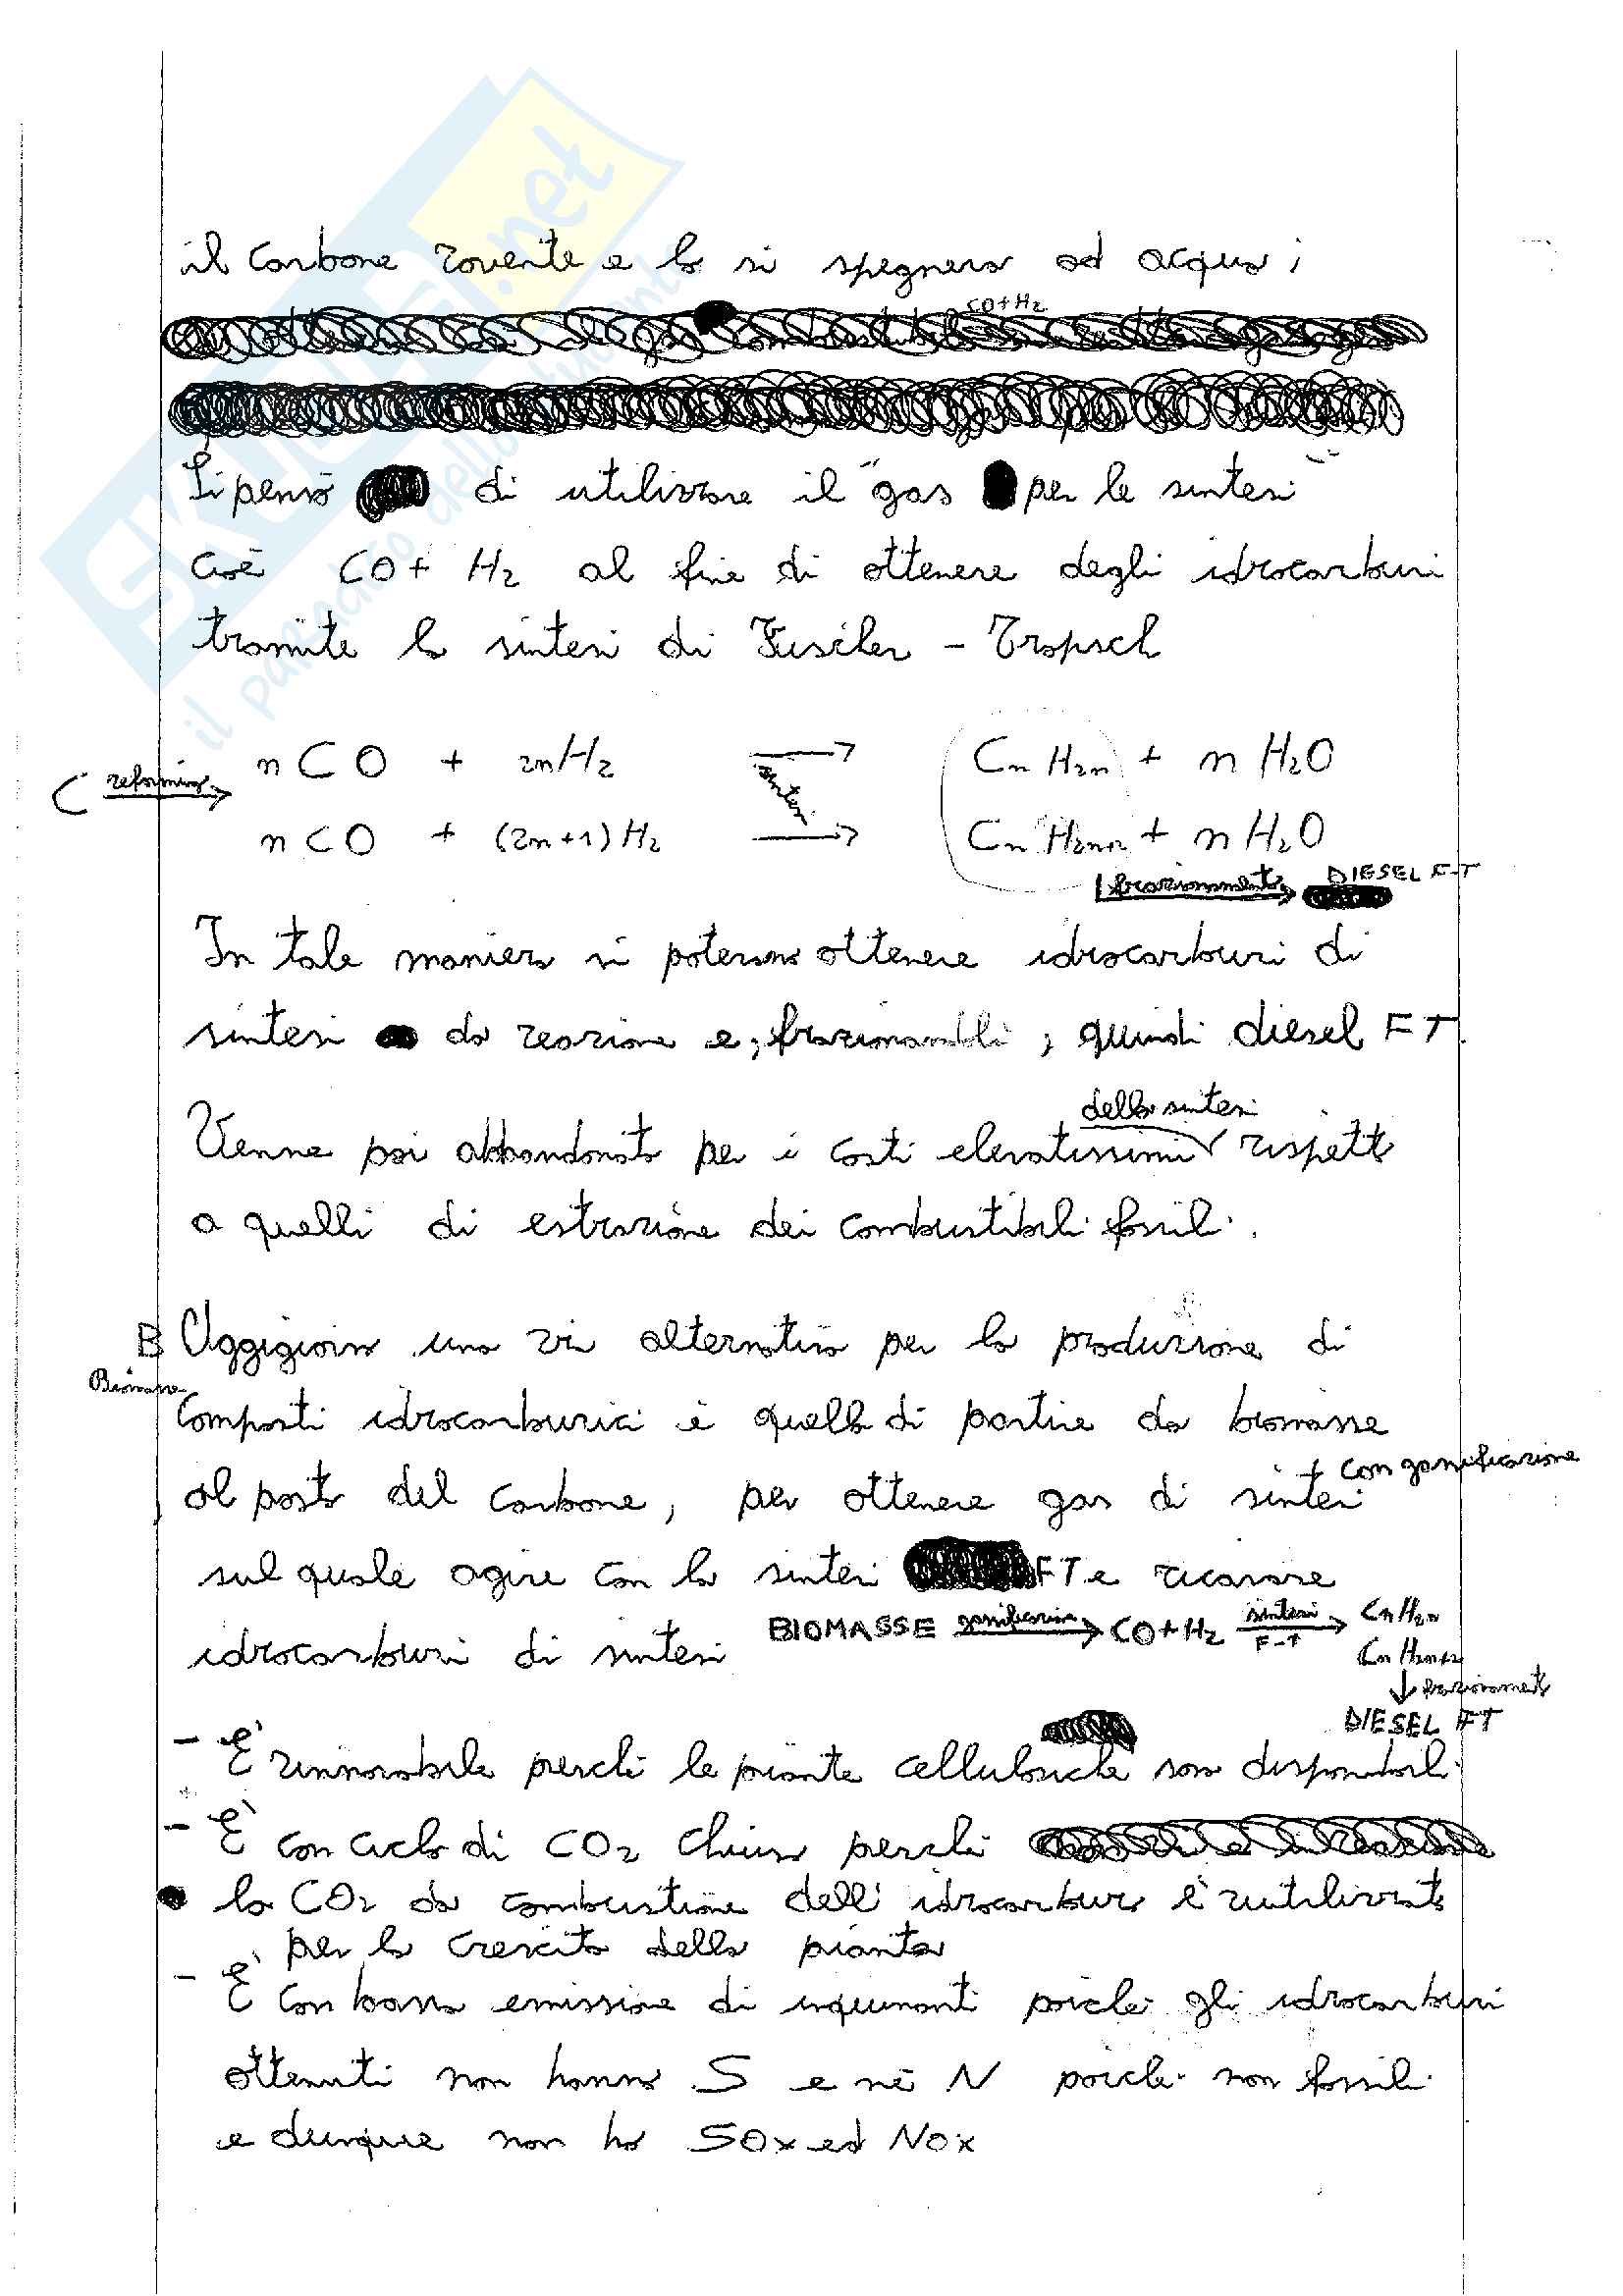 il carbone rovente e lo si spegneva ad acqua ;
CO+H2
Si pensò di utilizzare il "gas per le sintesi"
cioè CO + H2 al fine di ottenere degli idrocarburi
tramite la sintesi di Fischer - Tropsch
C reforming n CO + 2n H2 → Cn H2n + n H2O
sintesi
n CO + (2n+1) H2 → Cn H2n+2 + n H2O
frazionamento DIESEL F-T
In tale maniera si potevano ottenere idrocarburi di
sintesi da reazione e, frazionandoli, quindi diesel FT.
della sintesi
Venne poi abbandonato per i costi elevatissimi rispetto
a quelli di estrazione dei combustibili fossili.
B Oggigiorno una via alternativa per la produzione di
Biomasse
composti idrocarburici è quella di partire da biomasse
al posto del carbone, per ottenere gas di sintesi + con gassificazione
sul quale agire con la sintesi FT e ricavare
idrocarburi di sintesi BIOMASSE gassificazione → CO+H2 sintesi F-T → CnH2n
Cn H2n+2
↓ frazionamento
DIESEL FT
- E' rinnovabile perchè le piante cellulosiche sono disponibili
- E' con ciclo di CO2 chiuso perchè
la CO2 da combustione dell'idrocarburo è riutilizzata
per la crescita della pianta
- E' con bassa emissione di inquinanti poichè gli idrocarburi
ottenuti non hanno S e nè N poichè non fossili
e dunque non ho SOx ed NOx
SKUOLA.net
il paradiso dello studente